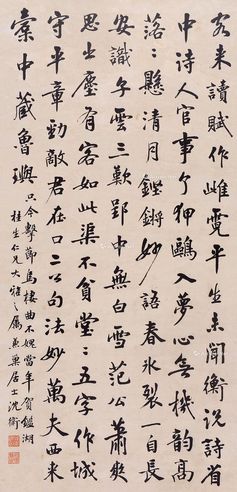 客來讀賦作雌霓平生未聞衡說詩省
中詩人官事了狎鷗入夢心無機韻高
落〻懸清月鏗鏘妙語春冰裂一自長
安識子雲三歎郢中無白雪范公蕭爽
思出塵有客如此渠不貧堂〻五字作城
守平章勁敵君在口二公句法妙萬夫西來
囊中藏魯璵只今擊節烏棲曲不媿當年賀鑑湖
桂生仁兄大雅之屬兼巢居士沈衛